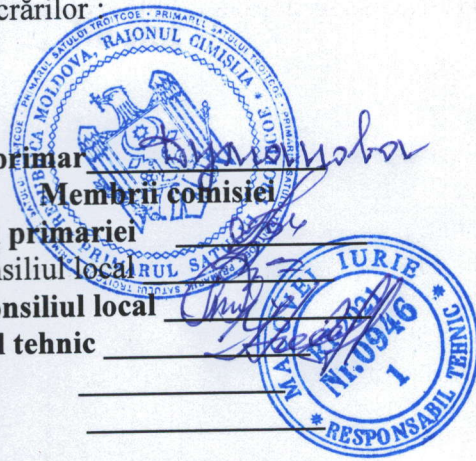 crărilor :
primar
Membrii comisiei
primariei
nsiliul local
onsiliul local
l tehnic
REPUBLICA MOLDOVA, RAIONUL CIMIŞLIA *
PRIMARUL SATULUI TROITCOE
IURIE * RESPONSABIL TEHNIC *
Nr.0946
1